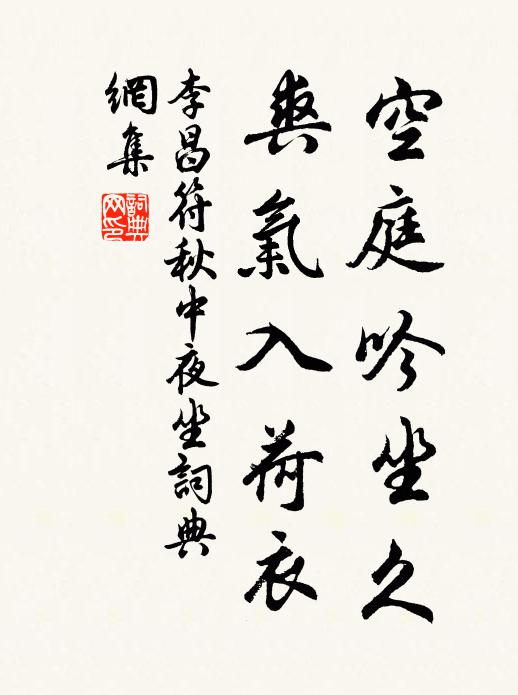 空庭吟坐久
爽氣入荷衣
李昌符秋中夜坐詞典
網集
詞典
网印